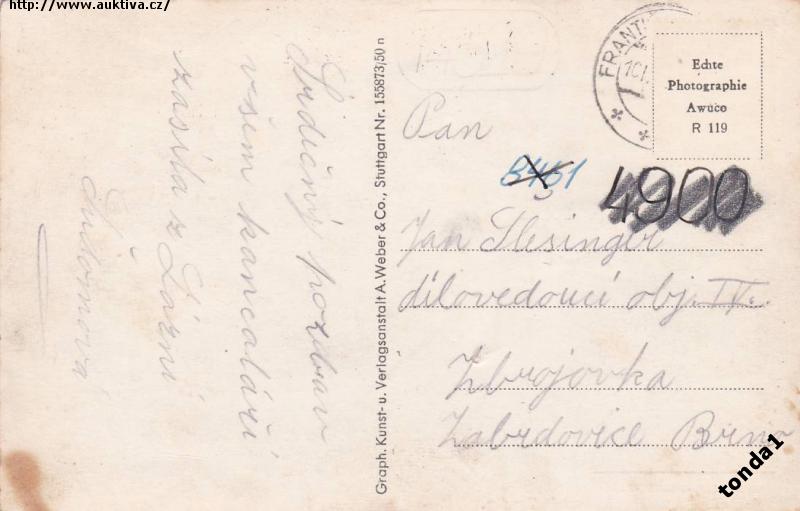 http://www.auktiva.cz/
Srdečný pozdrav
všem kancaláři
zasíla z Lázní
Graph. Kunst- u. Verlagsanstalt A. Weber & Co., Stuttgart Nr. 155873/50 n
FRANTI
Echte
Photographie
Awuco
R 119
Pan
4900
Jan Slesinger
dílovedoucí obj. IV.
Zbrojovka
Zabrdovice Brno
tonda1